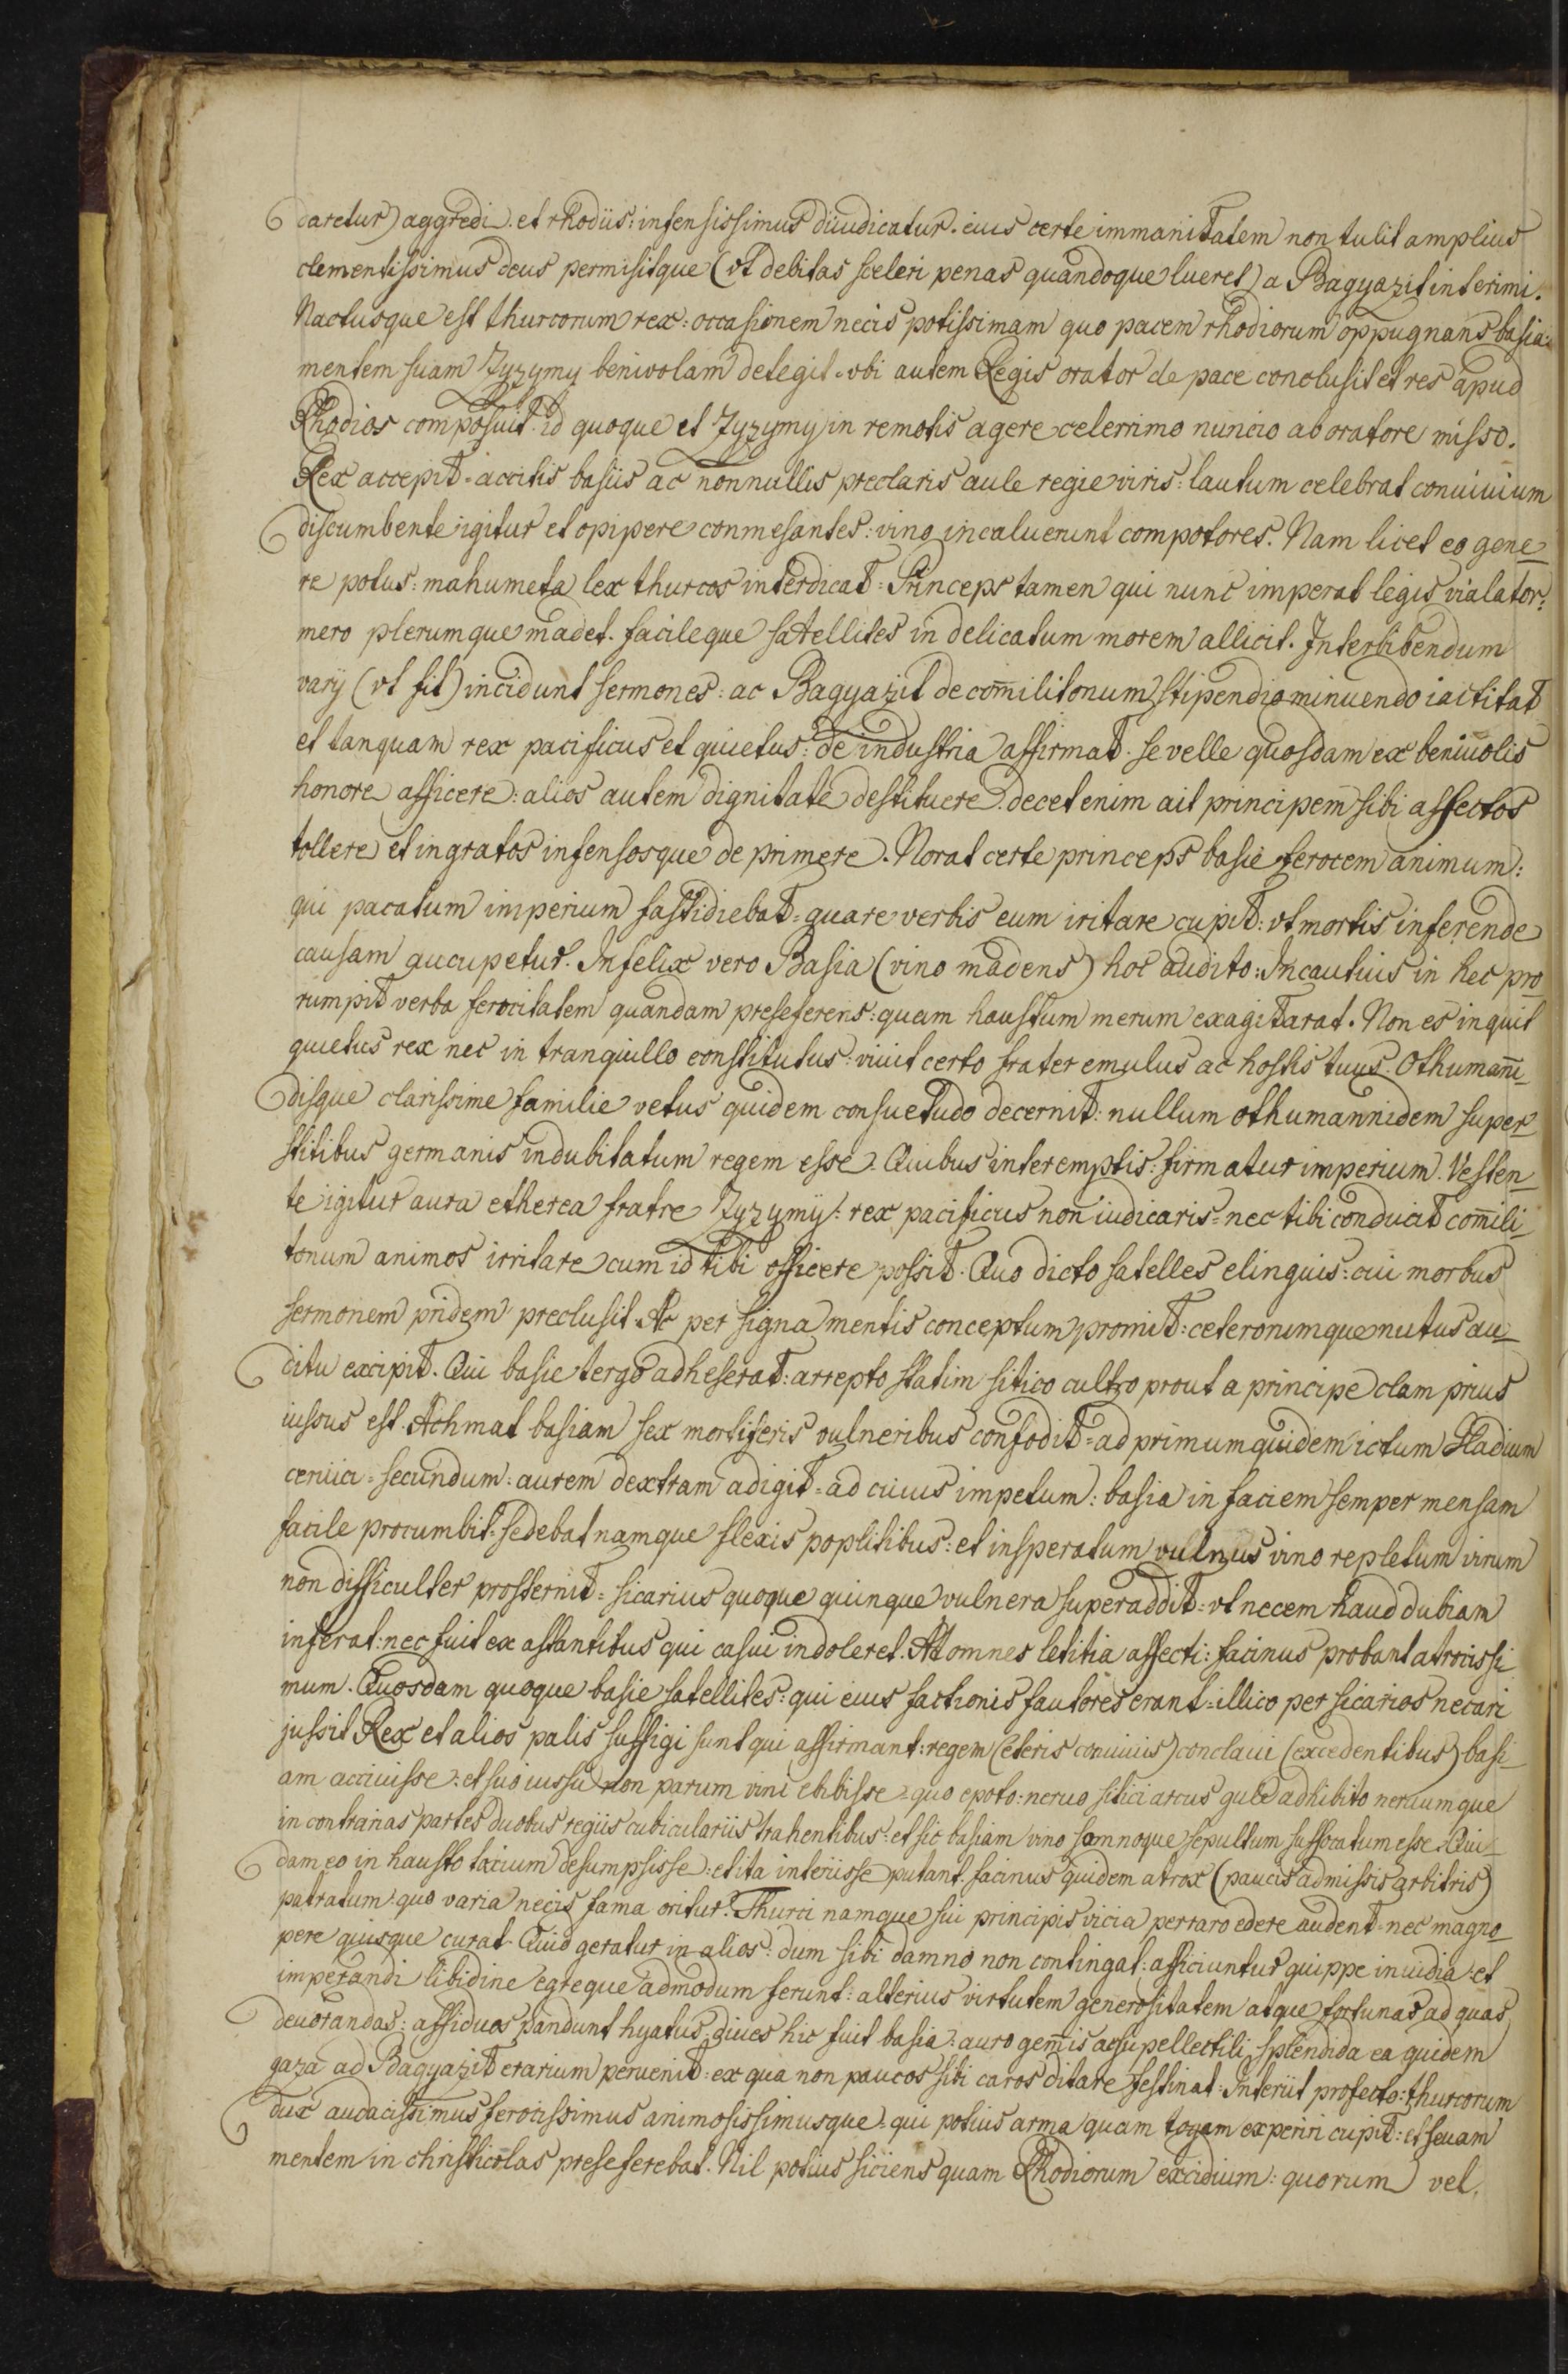 daretur) aggredi. et rhodiis: infensissimus diiudicatur. eius certe immanitatem non tulit amplius
clementissimus deus permisitque (vt debitas sceleri penas quandoque lueret) a Bagyazit interimi.
Nactusque est thurcorum rex: occasionem necis potissimam quo pacem rhodiorum oppugnans basia:
mentem suam Zyzymy beniuolam detegit. vbi autem Regis orator de pace conclusit et res apud
Rhodios composuit. id quoque et Zyzymy in remotis agere celerrimo nuncio ab oratore misso.
Rex accepit. accitis basiis ac nonnullis preclaris aule regie viris: lautum celebrat conuiuium
discumbente igitur et opipere conmesantes: vino incaluerunt compotores. Nam licet eo gene
re potus: mahumeta lex thurcos interdicat: Princeps tamen qui nunc imperat legis vialator:
mero plerumque madet. facileque satellites in delicatum morem allicit. Inter bibendum
varij (vt fit) incidunt sermones: ac Bagyazit de com̄ilitonum stipendio minuendo iactitat
et tanquam rex pacificus et quietus: de industria affirmat. se velle quosdam ex beniuolis
honore afficere: alios autem dignitate destituere. decet enim ait principem sibi affectos
tollere et ingratos infensosque de primere. Norat certe princeps basie ferocem animum:
qui pacatum imperium fastidiebat: quare verbis eum iritare cupit: vt mortis inferende
causam aucupetur. Infelix vero Basia (vino madens) hoc audito: Incautius in hec pro
rumpit verba ferocitatem quandam preseferens: quam haustum merum exagitarat. Non es inquit
quietus rex nec in tranquillo constitutus: viuit certo frater emulus ac hostis tuus. Othuman̄i_
disque clarissime familie vetus quidem consuetudo decernit: nullum othumannidem super_
stitibus germanis indubitatum regem esse. Quibus interemptis: firmatur imperium. Vesten_
te igitur aura etherea fratre Zyzymij: rex pacificus non iudicaris: nec tibi conducit com̄ili_
tonum animos irritare cum id tibi officere possit. Quo dicto satelles elinguis: cui morbus
sermonem pridem preclusit. Ac per signa mentis conceptum promit: ceterorumque nutus au_
ditu excipit. Qui basie tergo adheserat: arrepto statim sitico cultro prout a principe clam prius
iussus est. Achmat basiam sex mortiferis vulneribus confodit: ad primum quidem ictum Gladium
ceruici: secundum: aurem dextram adigit: ad cuius impetum: basia in faciem semper mensam
facile procumbit: sedebat namque flexis poplitibus: et insperatum vulnus vino repletum virum
non difficulter prosternit: sicarius quoque quinque vulnera superaddit: vt necem haud dubiam
inferat: nec fuit ex astantibus qui casui indoleret. At omnes letitia affecti: facinus probant atrocissi
mum. Quosdam quoque basie satellites: qui eius factionis fautores erant: illico per sicarios necari
jussit Rex et alios palis suffigi sunt qui affirmant: regem (ceteris conuiuis) conclaui (excedentibus) basi_
am acciuisse: et suo iussu non parum vini ebibisse: quo epoto: neruo sitici arcus gule adhibito neruumque
in contrarias partes duobus regiis cubiculariis trahentibus: et sic basiam vino somnoque sepultum suffocatum esse. Qui_
dam eo in hausto toxicum desumpsisse: et ita interiisse putant. facinus quidem atrox (paucis admissis arbitris)
patratum: quo varia necis fama oritur. Thurci namque sui principis vicia perraro edere audent: nec magno_
pere quisque curat. Quid geratur in alios: dum sibi damno non contingat: afficiuntur quippe inuidia: et
imperandi libidine egreque admodum ferunt: alterius virtutem generositatem atque fortunas ad quas
deuorandas: assiduos pandunt hyatus. diues hic fuit basia: auro gem̄is ac supellectili splendida ea quidem
gaza ad Bagyazit erarium peruenit: ex qua non paucos sibi caros ditare festinat. Interiit profecto: thurcorum
dux audacissimus ferocissimus animosissimusque: qui potius arma quam togam experiri cupit: et seuam
mentem in christicolas preseferebat. Nil potius siciens quam Rhodiorum excidium: quorum vel.